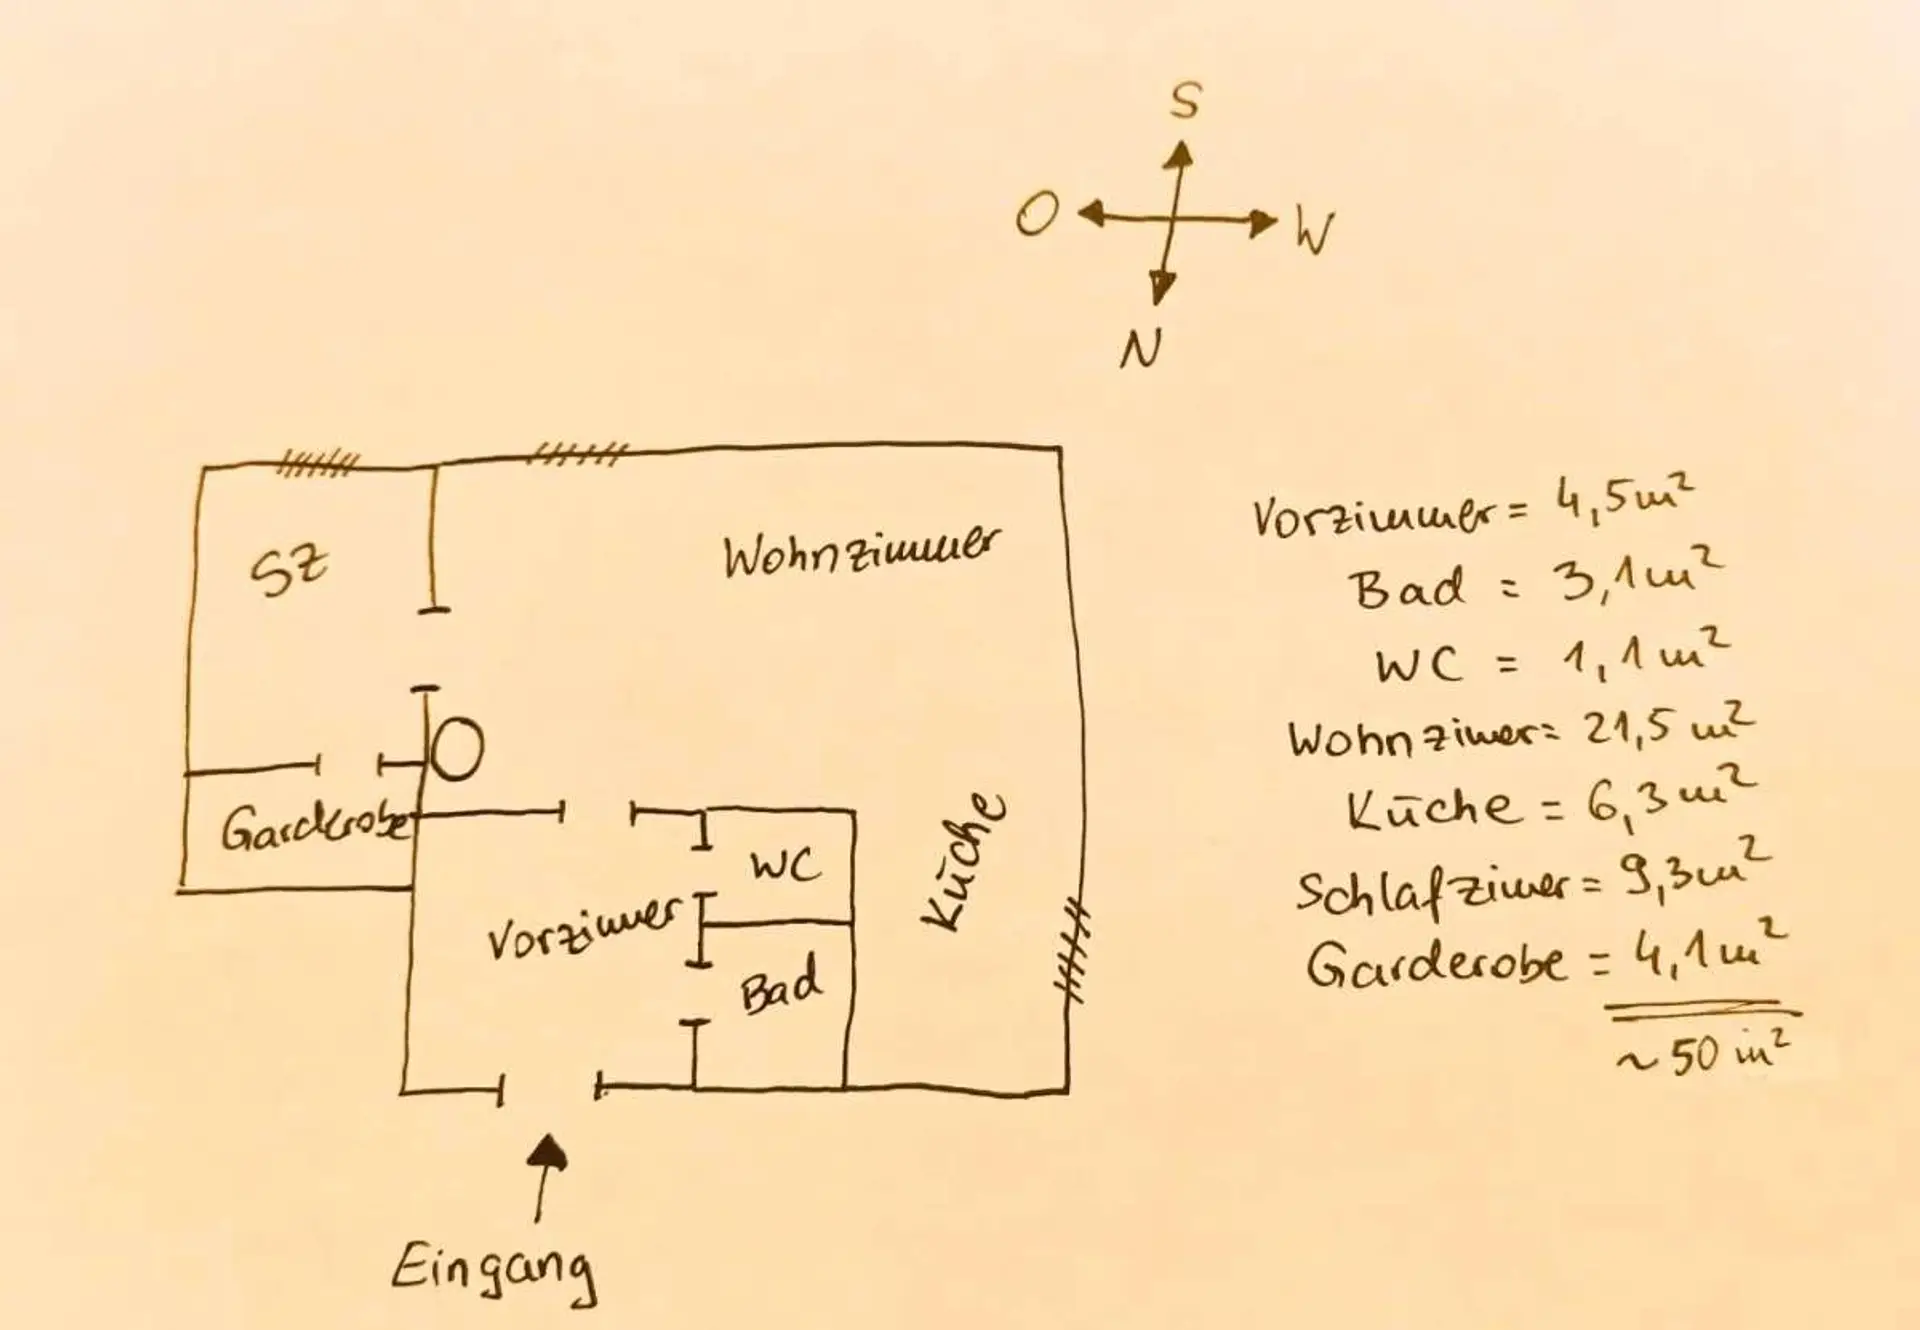 S
O W
N
SZ
Wohnzimmer
Garderobe
WC
Vorzimmer
Bad
Küche
Eingang
Vorzimmer = 4,5 m²
Bad = 3,1 m²
WC = 1,1 m²
Wohnzimer = 21,5 m²
Küche = 6,3 m²
Schlafzimer = 9,3 m²
Garderobe = 4,1 m²
~ 50 m²